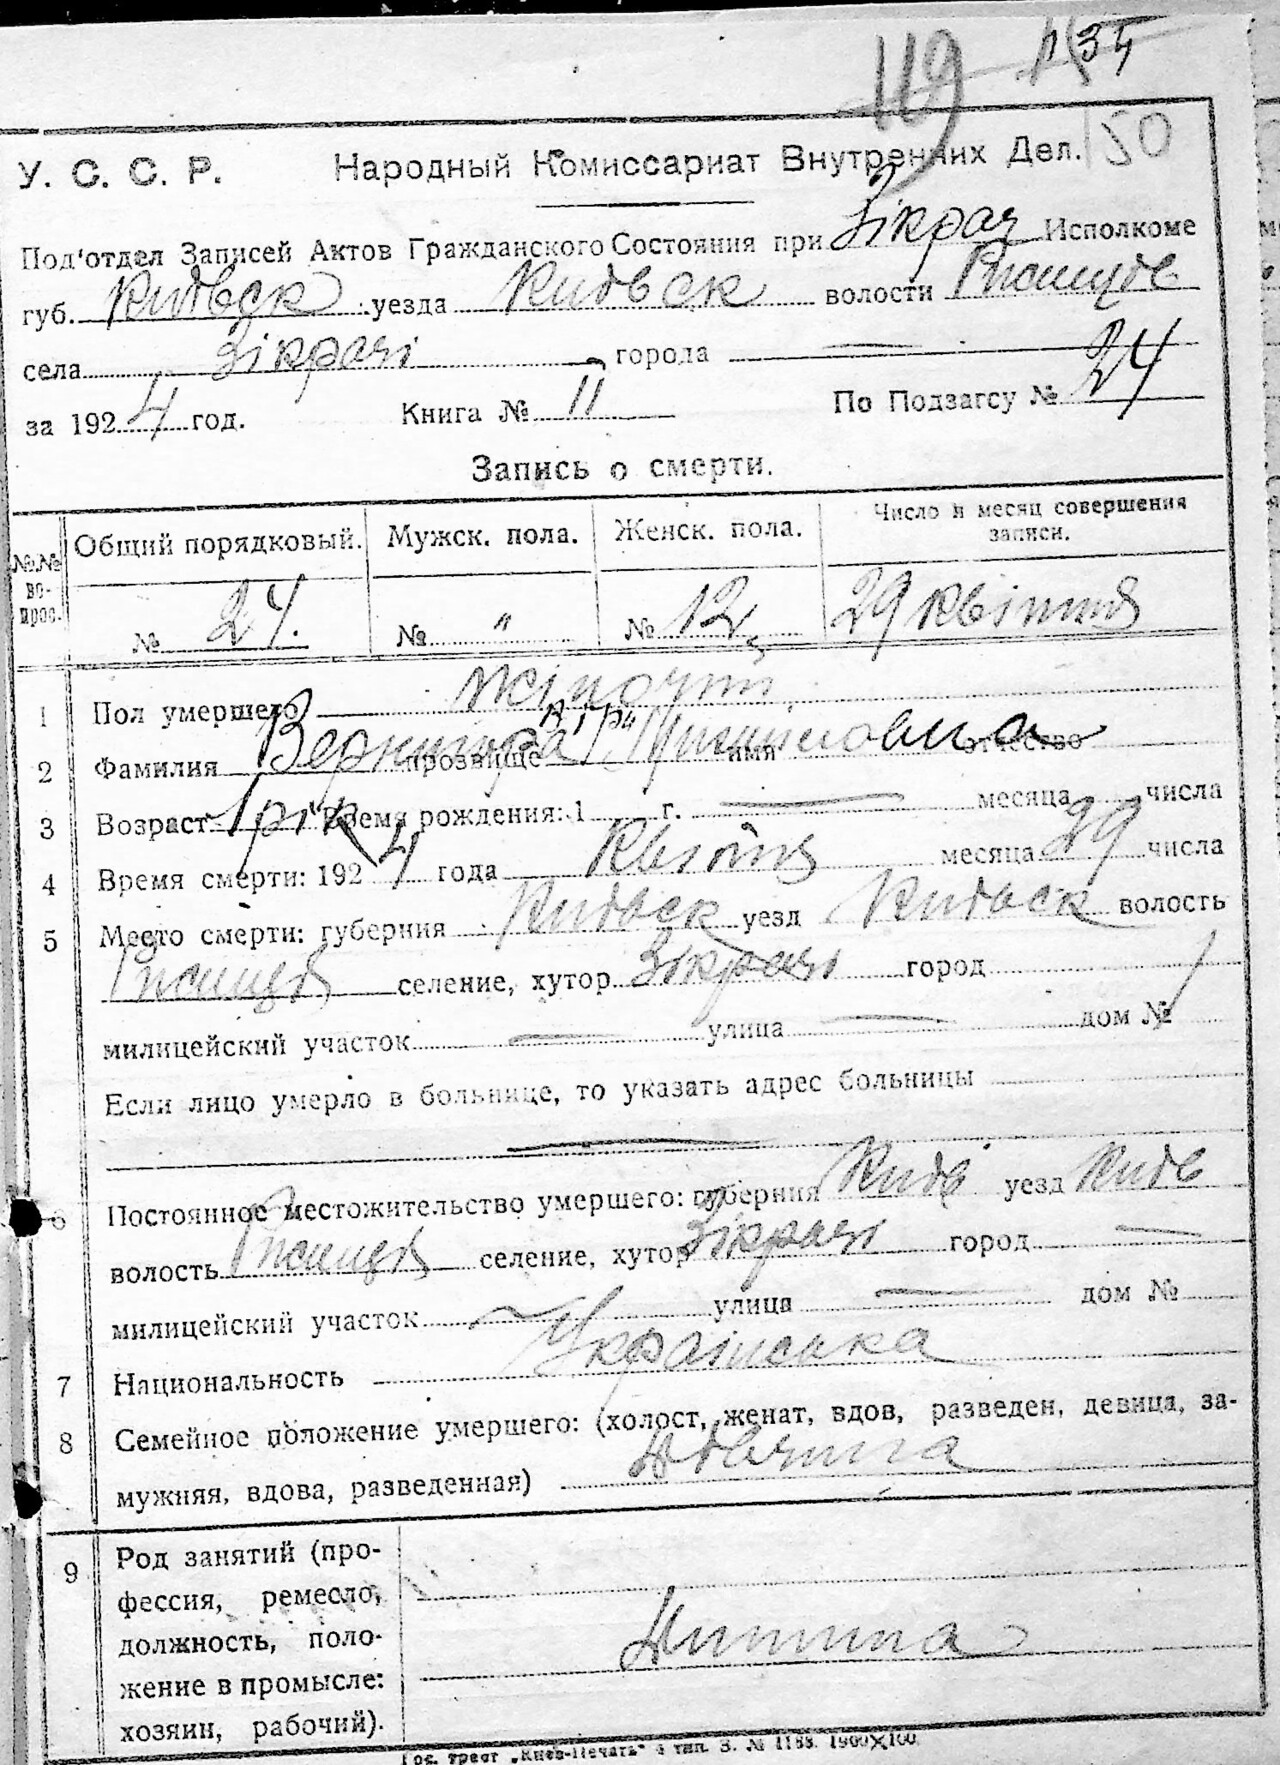 119 134
150
У. С. С. Р. Народный Комиссариат Внутренних Дел.
Под'отдел Записей Актов Гражданского Состояния при Зікрач Исполкоме
губ. Київск уезда Київск волости Ржищів
села Зікрачі города —
за 1924 год. Книга № II По Подзагсу № 24
Запись о смерти.
№.№ вопрос. Общий порядковый. Мужск. пола. Женск. пола. Число и месяц совершения записи.
№ 24. № " № 12 29 квітня
1 Пол умершего жіночій
2 Фамилия прозвище имя отчество
3 Возраст 1 рік Время рождения: 1 г. — месяца числа
4 Время смерти: 1924 года Квітня месяца 29 числа
5 Место смерти: губерния Київск уезд Київск волость
Ржищів селение, хутор Зікрачі город
милицейский участок — улица — дом №
Если лицо умерло в больнице, то указать адрес больницы
—
6 Постоянное местожительство умершего: губерния Київ уезд Київ
волость Ржищів селение, хутор Зікрачі город —
милицейский участок — улица — дом №
7 Национальность Українська
8 Семейное положение умершего: (холост, женат, вдов, разведен, девица, за-
мужняя, вдова, разведенная) Дівчина
9 Род занятий (про-
фессия, ремесло,
должность, поло- Дитина
жение в промысле:
хозяин, рабочий).
Гос. трест „Киев-Печать" 4 тип. З. № 1188. 1900×100.